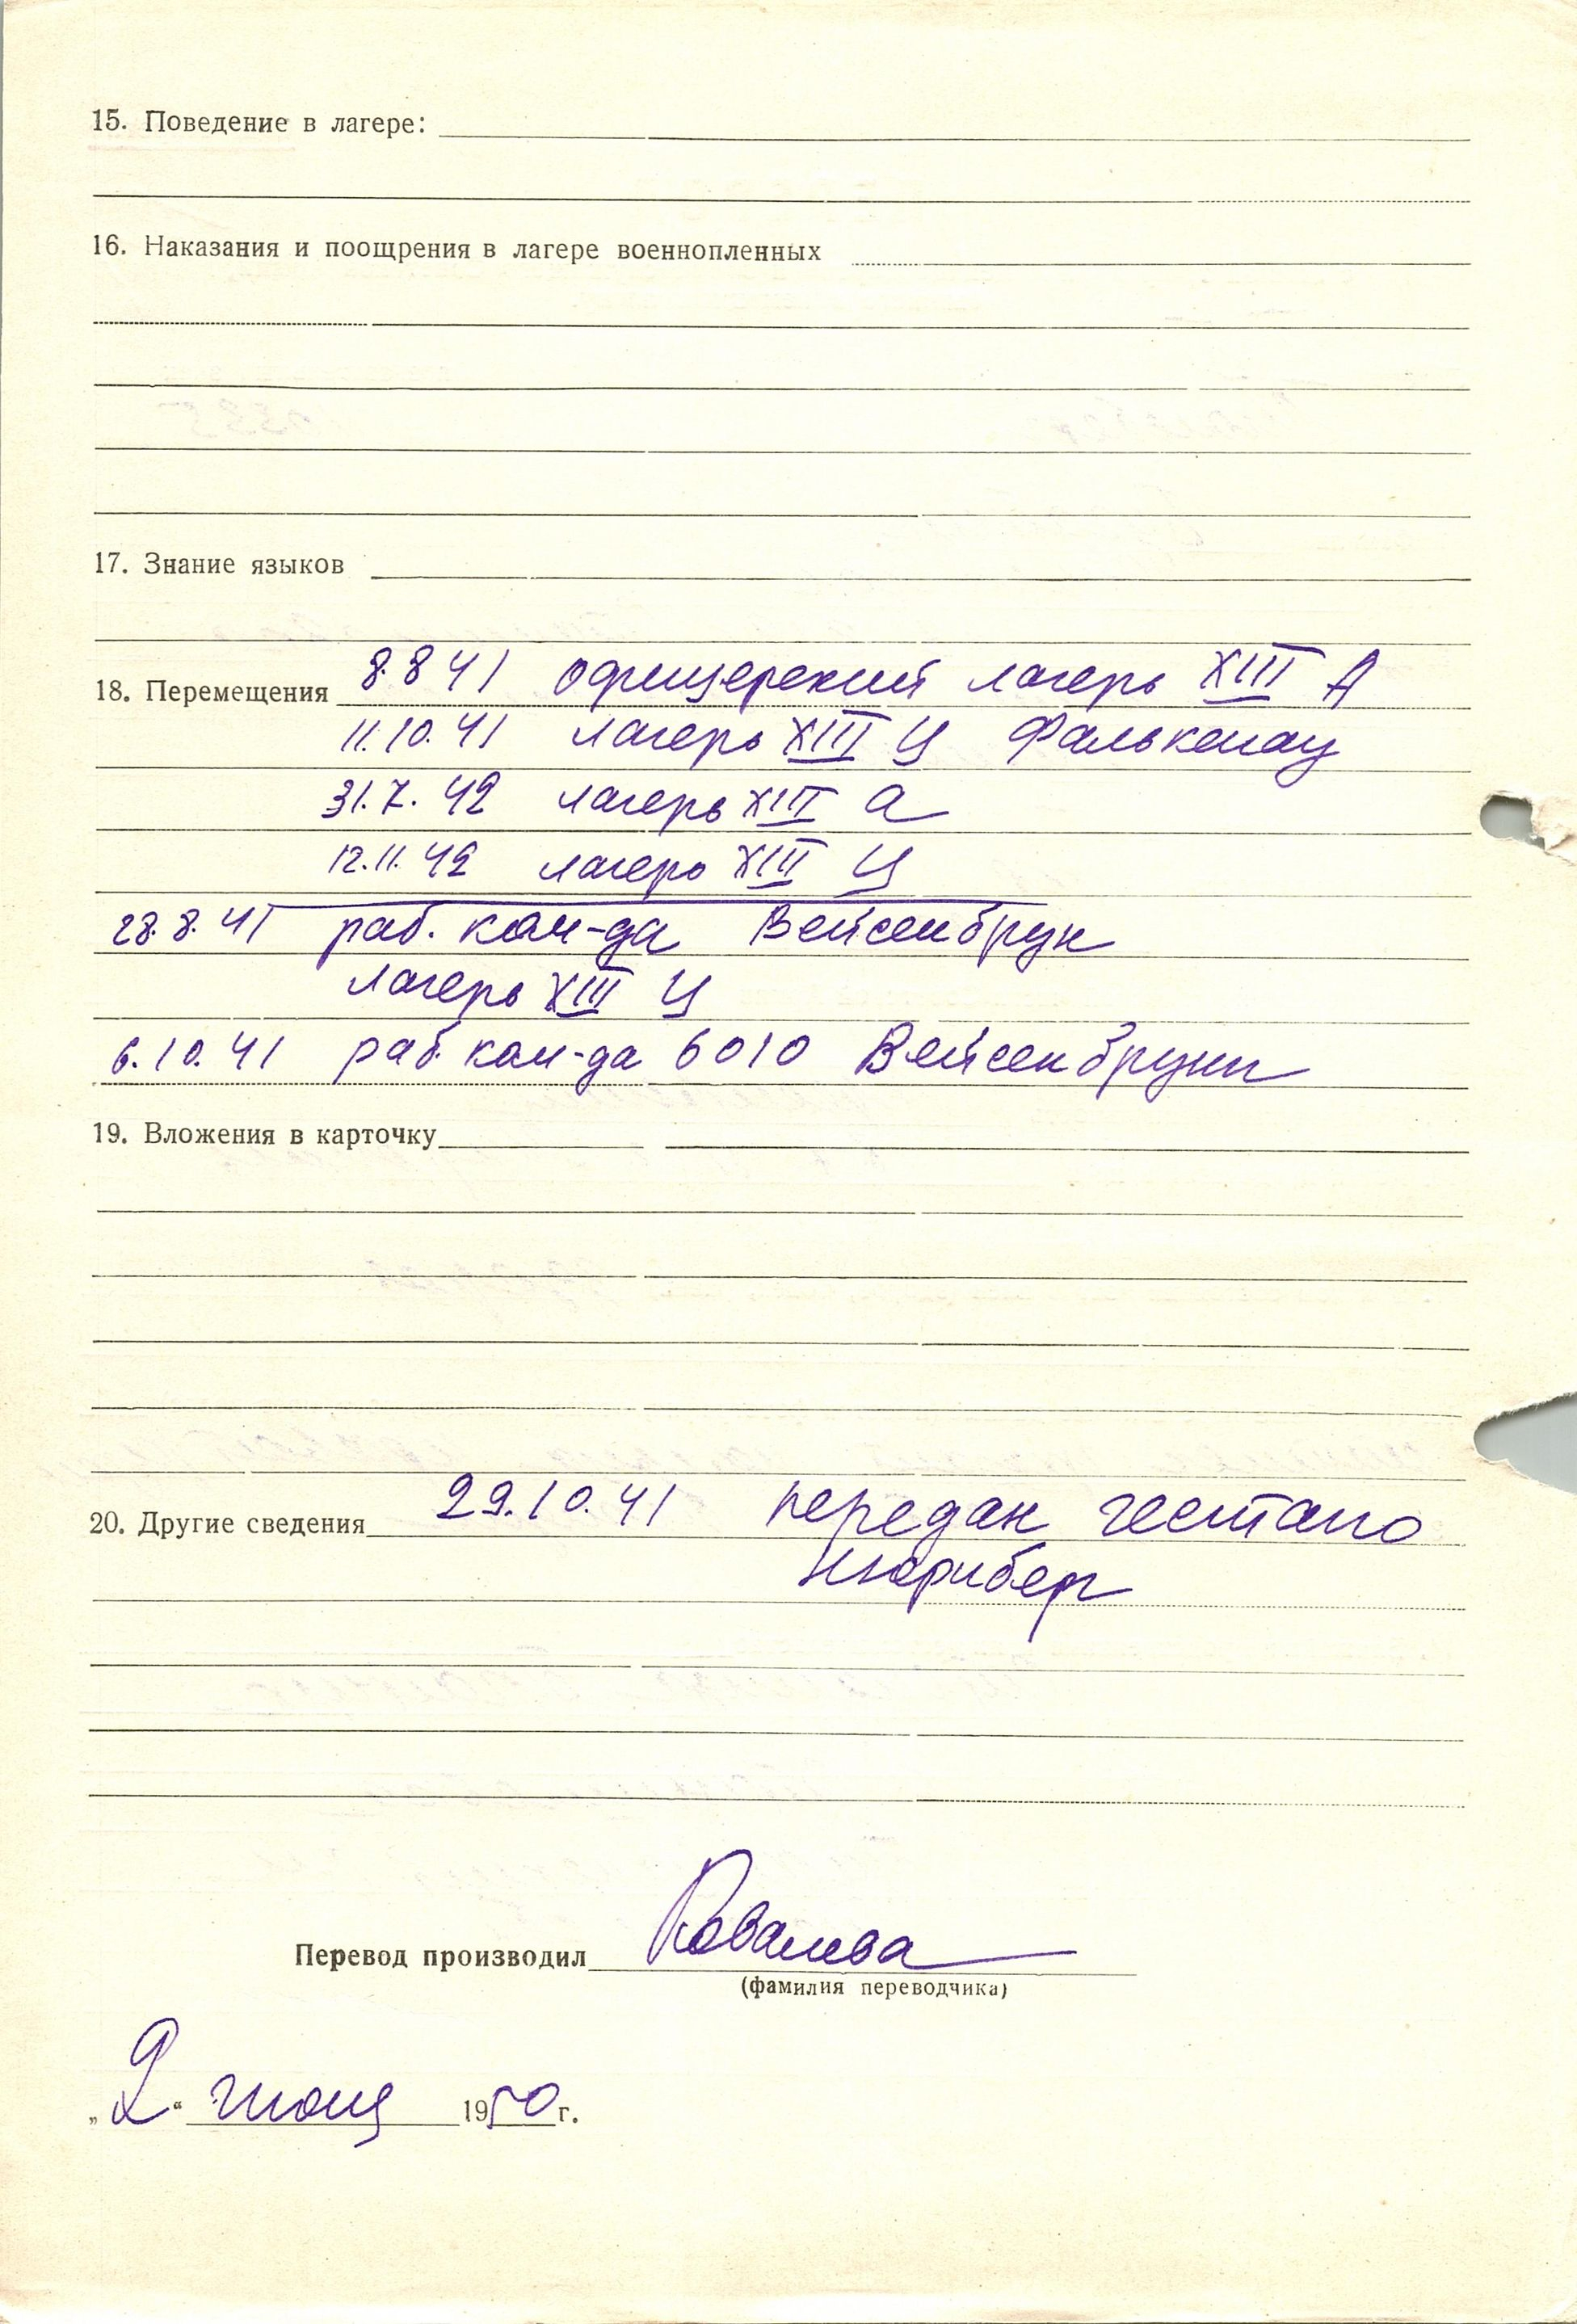 15. Поведение в лагере:
16. Наказания и поощрения в лагере военнопленных
17. Знание языков
18. Перемещения 8.8 41 офицерский лагерь XIII А
11.10.41 лагерь XIII Ц Фалькенау
31.7.42 лагерь XIII а
12.11.42 лагерь XIII Ц
28.8.41 раб. ком-да Вейсенбрун
лагерь XIII Ц
6.10.41 раб. ком-да 6010 Вейсенбрунн
19. Вложения в карточку
20. Другие сведения 29.10.41 передан гестапо
Нюрнберг
Перевод производил Ковалева
(фамилия переводчика)
„2“ июня 1950 г.